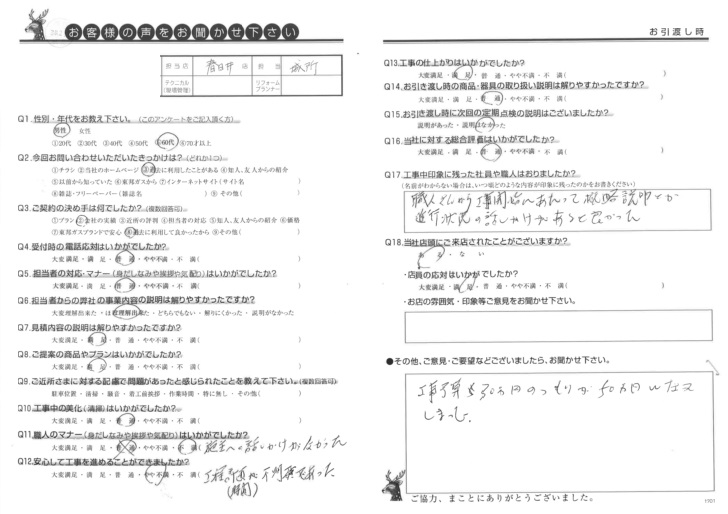 お客様の声をお聞かせ下さい
担当店 春日井 店 担当
テクニカル(現場管理) リフォームプランナー
Q1.性別・年代をお教え下さい。(このアンケートをご記入頂く方)
男性 女性
①20代 ②30代 ③40代 ④50代 ⑤60代 ⑥70才以上
Q2.今回お問い合わせいただいたきっかけは?(どれか1つ)
①チラシ ②当社のホームページ ③過去に利用したことがある ④知人、友人からの紹介
⑤以前から知っていた ⑥東邦ガスから ⑦インターネットサイト(サイト名 )
⑧雑誌・フリーペーパー(雑誌名 ) ⑨その他( )
Q3.ご契約の決め手は何ですか?(複数回答可)
①プラン ②会社の実績 ③近所の評判 ④担当者の対応 ⑤知人、友人からの紹介 ⑥価格
⑦東邦ガスブランドで安心 ⑧過去に利用して良かったから ⑨その他( )
Q4.受付時の電話応対はいかがでしたか?
大変満足・満 足・普 通・やや不満・不 満( )
Q5.担当者の対応・マナー(身だしなみや挨拶や気配り)はいかがでしたか?
大変満足・満 足・普 通・やや不満・不 満( )
Q6.担当者からの弊社の事業内容の説明は解りやすかったですか?
大変理解出来た・ほぼ理解出来た・どちらでもない・解りにくかった・説明がなかった
Q7.見積内容の説明は解りやすかったですか?
大変満足・満 足・普 通・やや不満・不 満( )
Q8.ご提案の商品やプランはいかがでしたか?
大変満足・満 足・普 通・やや不満・不 満( )
Q9.ご近所さまに対する配慮で問題があったと感じられたことを教えて下さい。(複数回答可)
駐車位置・清掃・騒音・着工前挨拶・作業時間・特に無し・その他( )
Q10.工事中の美化(清掃)はいかがでしたか?
大変満足・満 足・普 通・やや不満・不 満( )
Q11.職人のマナー(身だしなみや挨拶や気配り)はいかがでしたか?
大変満足・満 足・普 通・やや不満・不 満( 施主への話しかけがなかった
Q12.安心して工事を進めることができましたか?
大変満足・満 足・普 通・やや不満・不 満( 不明確であった
(時間)
お引渡し時
Q13.工事の仕上がりはいかがでしたか?
大変満足・満 足・普 通・やや不満・不 満( )
Q14.お引き渡し時の商品・器具の取り扱い説明は解りやすかったですか?
大変満足・満 足・普 通・やや不満・不 満( )
Q15.お引き渡し時に次回の定期点検の説明はございましたか?
説明があった・説明はなかった
Q16.当社に対する総合評価はいかがでしたか?
大変満足・満 足・普 通・やや不満・不 満( )
Q17.工事中印象に残った社員や職人はおりましたか?
(名前がわからない場合は、いつ頃どのような内容が印象に残ったのかをお書きください)
職人さんから工事開始にあたって概略説明とか
進行状況の話しかけがあると良かった
Q18.当社店頭にご来店されたことがございますか?
ある・ない
・店員の応対はいかがでしたか?
大変満足・満 足・普 通・やや不満・不 満( )
・お店の雰囲気・印象等ご意見をお聞かせ下さい。
●その他、ご意見・ご要望などございましたら、お聞かせ下さい。
工事予算も30万円のつもりが50万円になって
しまった。
ご協力、まことにありがとうございました。